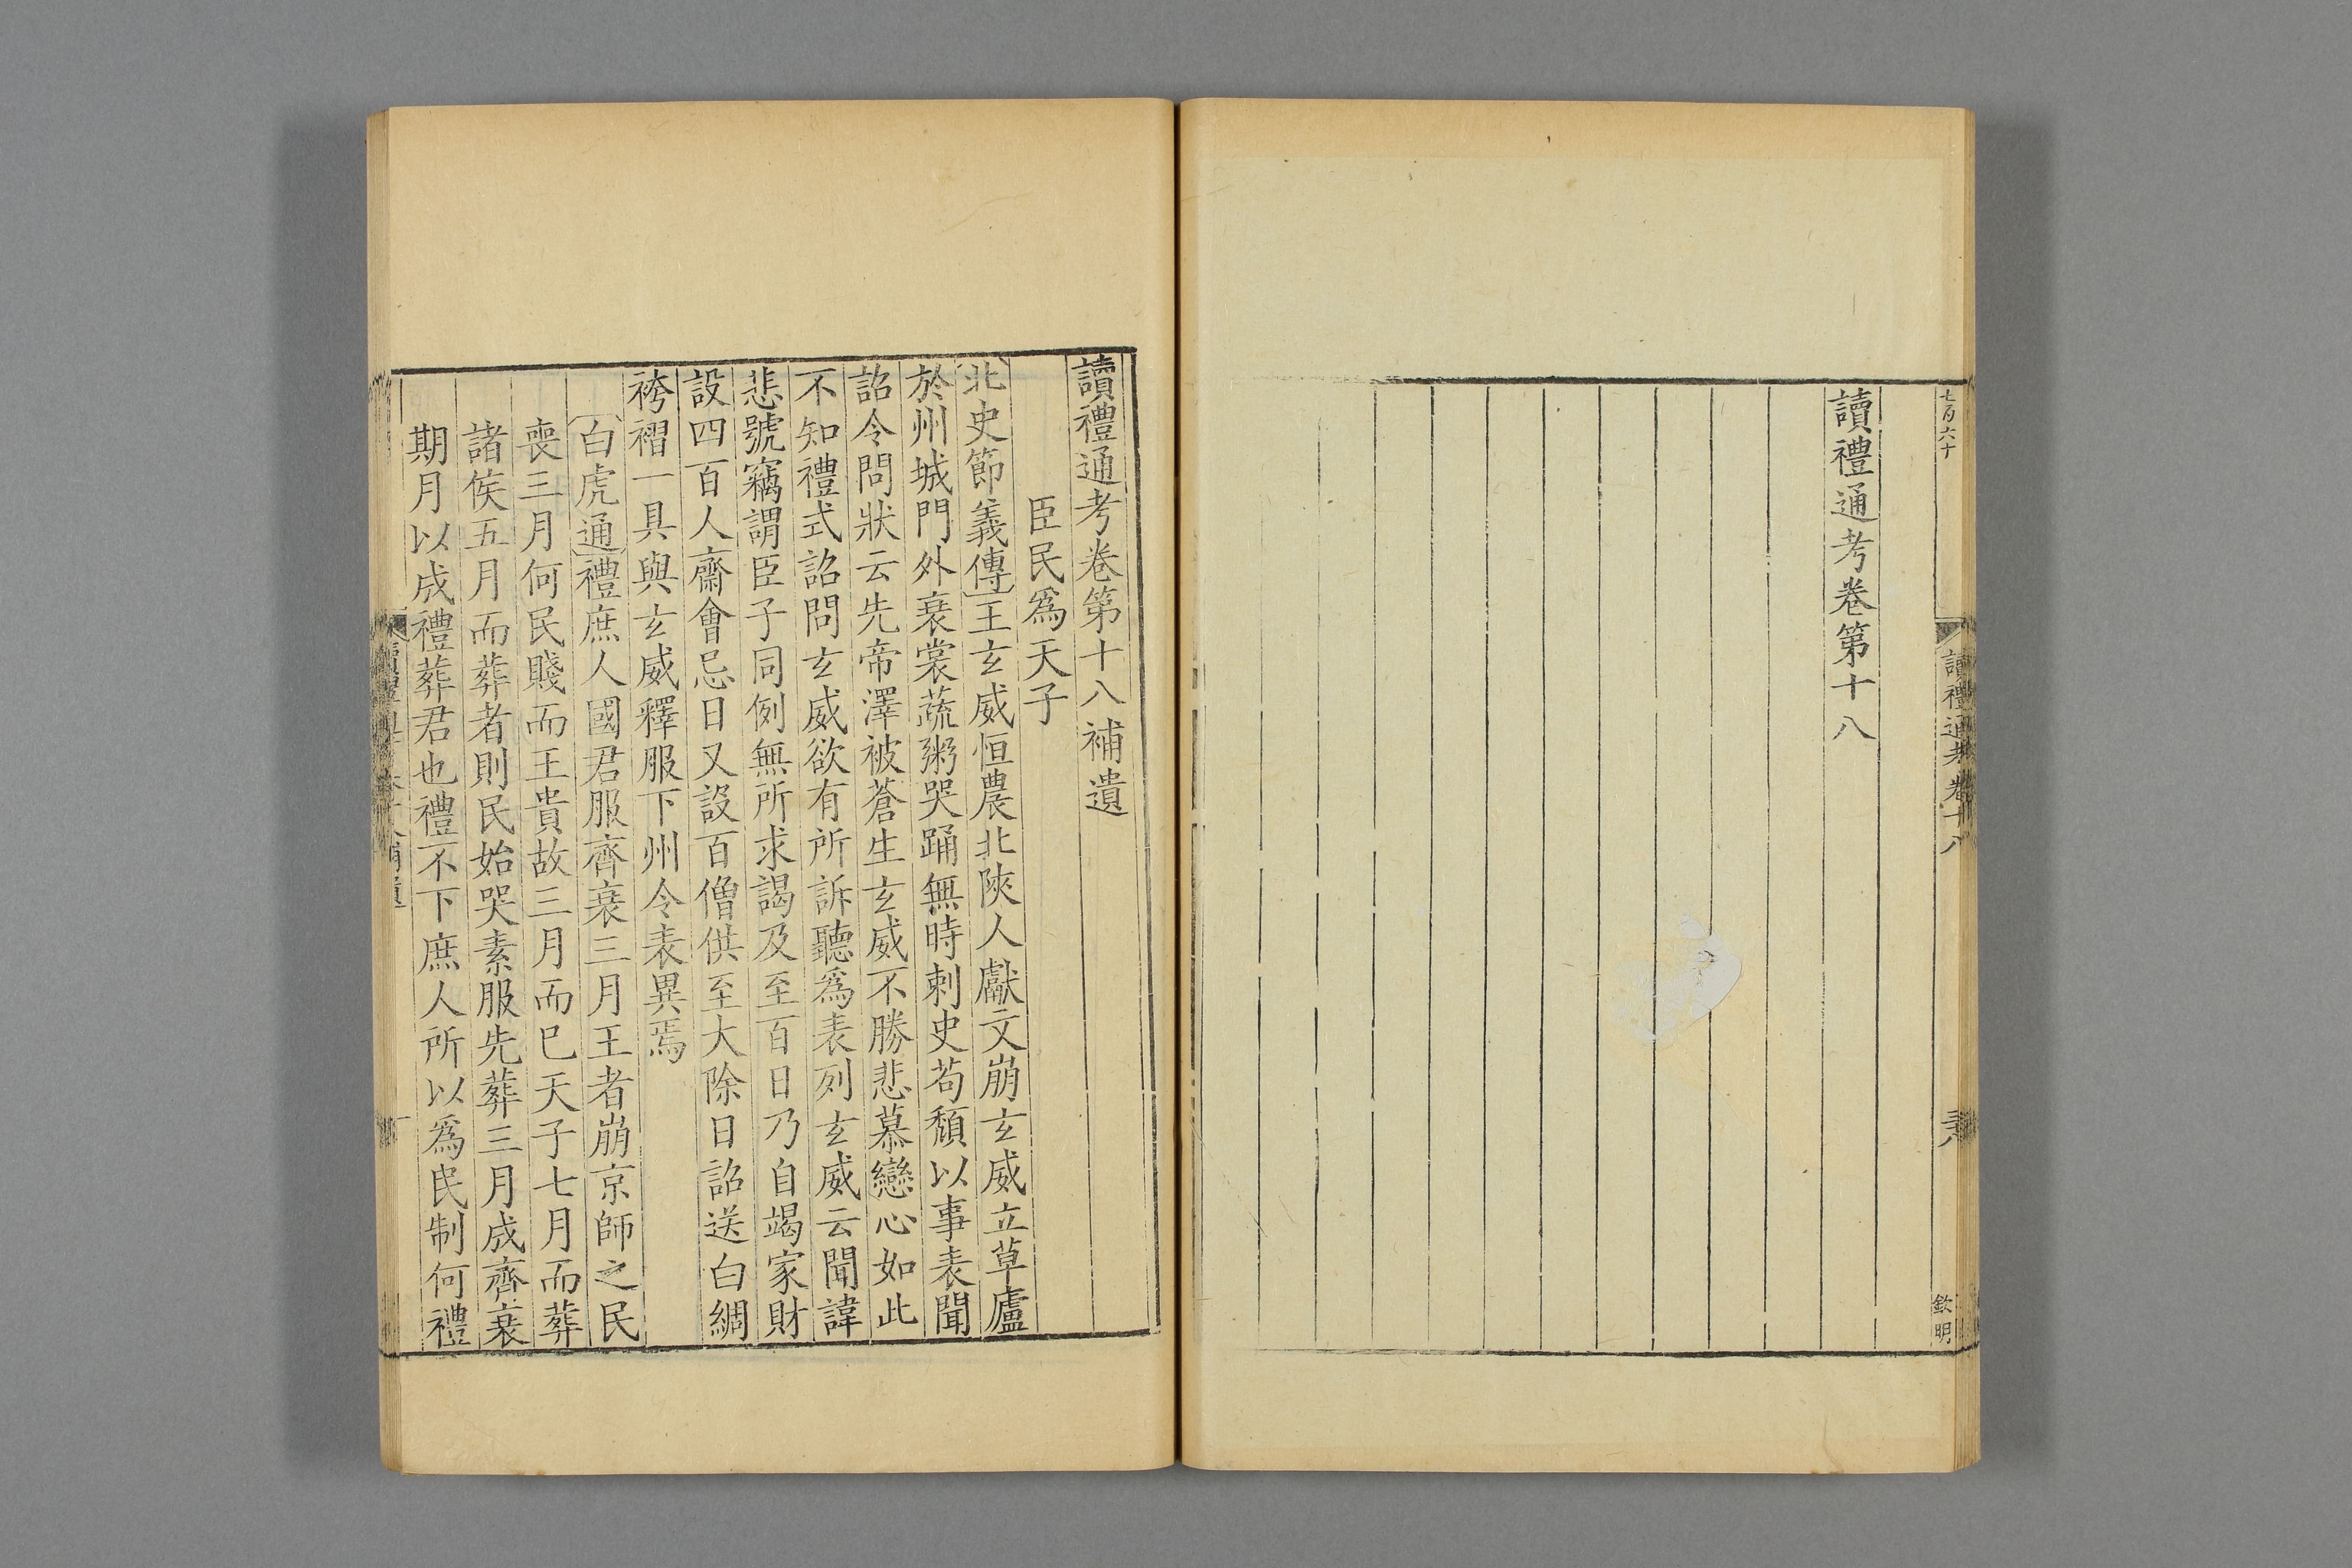 讀禮通考卷第十八
讀禮通考卷十八
欽明
讀禮通考卷第十八補遺
臣民爲天子
北史節義傳王玄威恒農北陝人獻文崩玄威立草廬
於州城門外衰裳蔬粥哭踊無時刺史苟頹以事表聞
詔令問狀云先帝澤被蒼生玄威不勝悲慕戀心如此
不知禮式詔問玄威欲有所訴聽爲表列玄威云聞諱
悲號竊謂臣子同例無所求謁及至百日乃自竭家財
設四百人齋會忌日又設百僧供至大除日詔送白綢
袴褶一具與玄威釋服下州令表異焉
白虎通禮庶人國君服齊衰三月王者崩京師之民
喪三月何民賤而王貴故三月而已天子七月而葬
諸侯五月而葬者則民始哭素服先葬三月成齊衰
期月以成禮葬君也禮不下庶人所以爲民制何禮